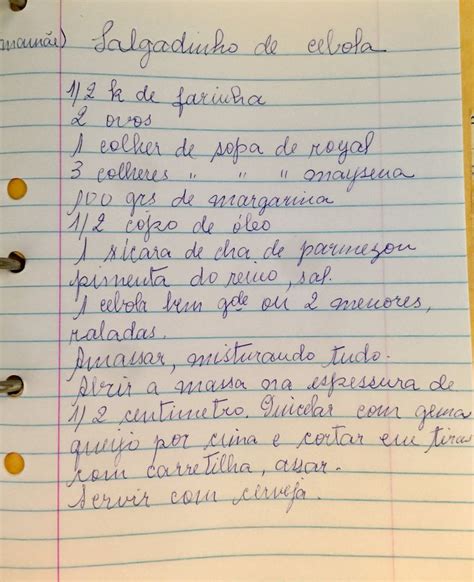 mamãe) Salgadinho de cebola
1/2 k de farinha
2 ovos
1 colher de sopa de royal
3 colheres " " " maysena
100 grs de margarina
1/2 copo de óleo
1 xícara de chá de parmezon
pimenta do reino, sal.
1 cebola bem gde ou 2 menores,
raladas.
Amassar, misturando tudo.
Abrir a massa na espessura de
1/2 centimetro. Pincelar com gema
queijo por cima e cortar em tiras
com carretilha, assar.
Servir com cerveja.